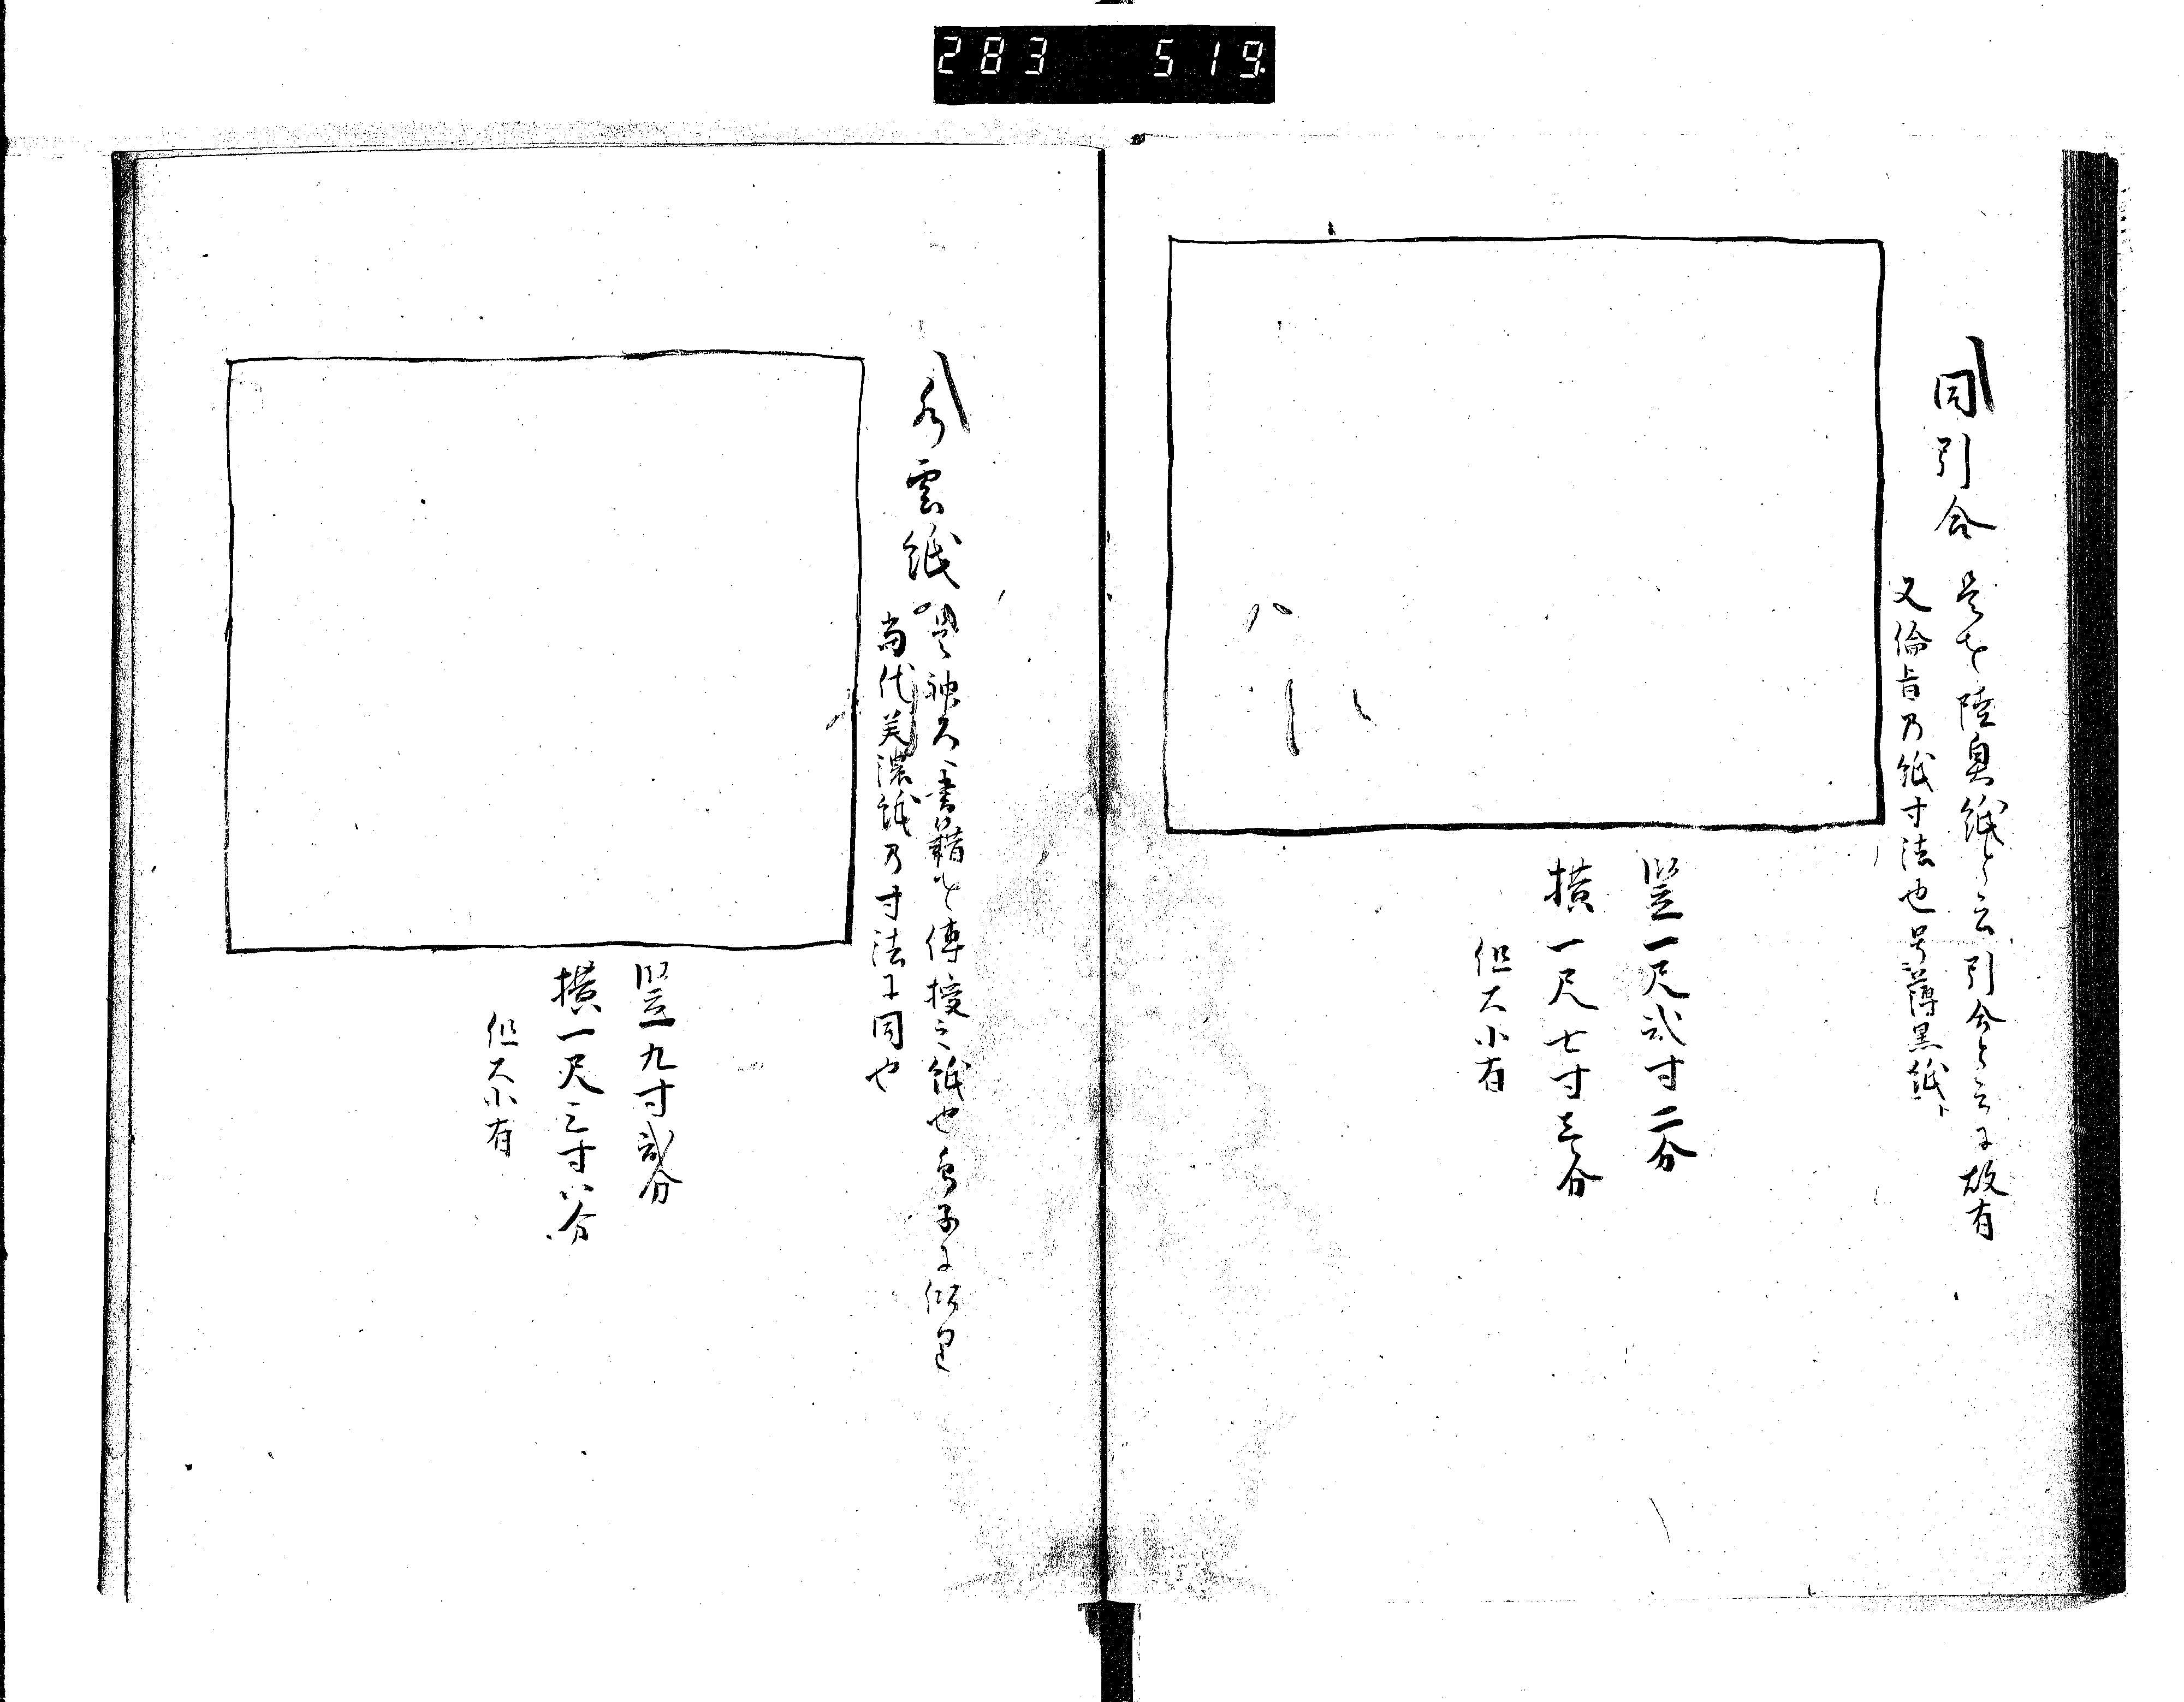 283 519
同引合
是を陸奥紙と云引合と云に故有
又倫旨乃紙寸法也号薄黒紙
竪一尺弐寸二分
横一尺七寸三分
但大小有
雲紙
書籍を傳授之紙也鳥子に似
当代美濃紙乃寸法に同也
竪九寸弐分
横一尺三寸八分
但大小有